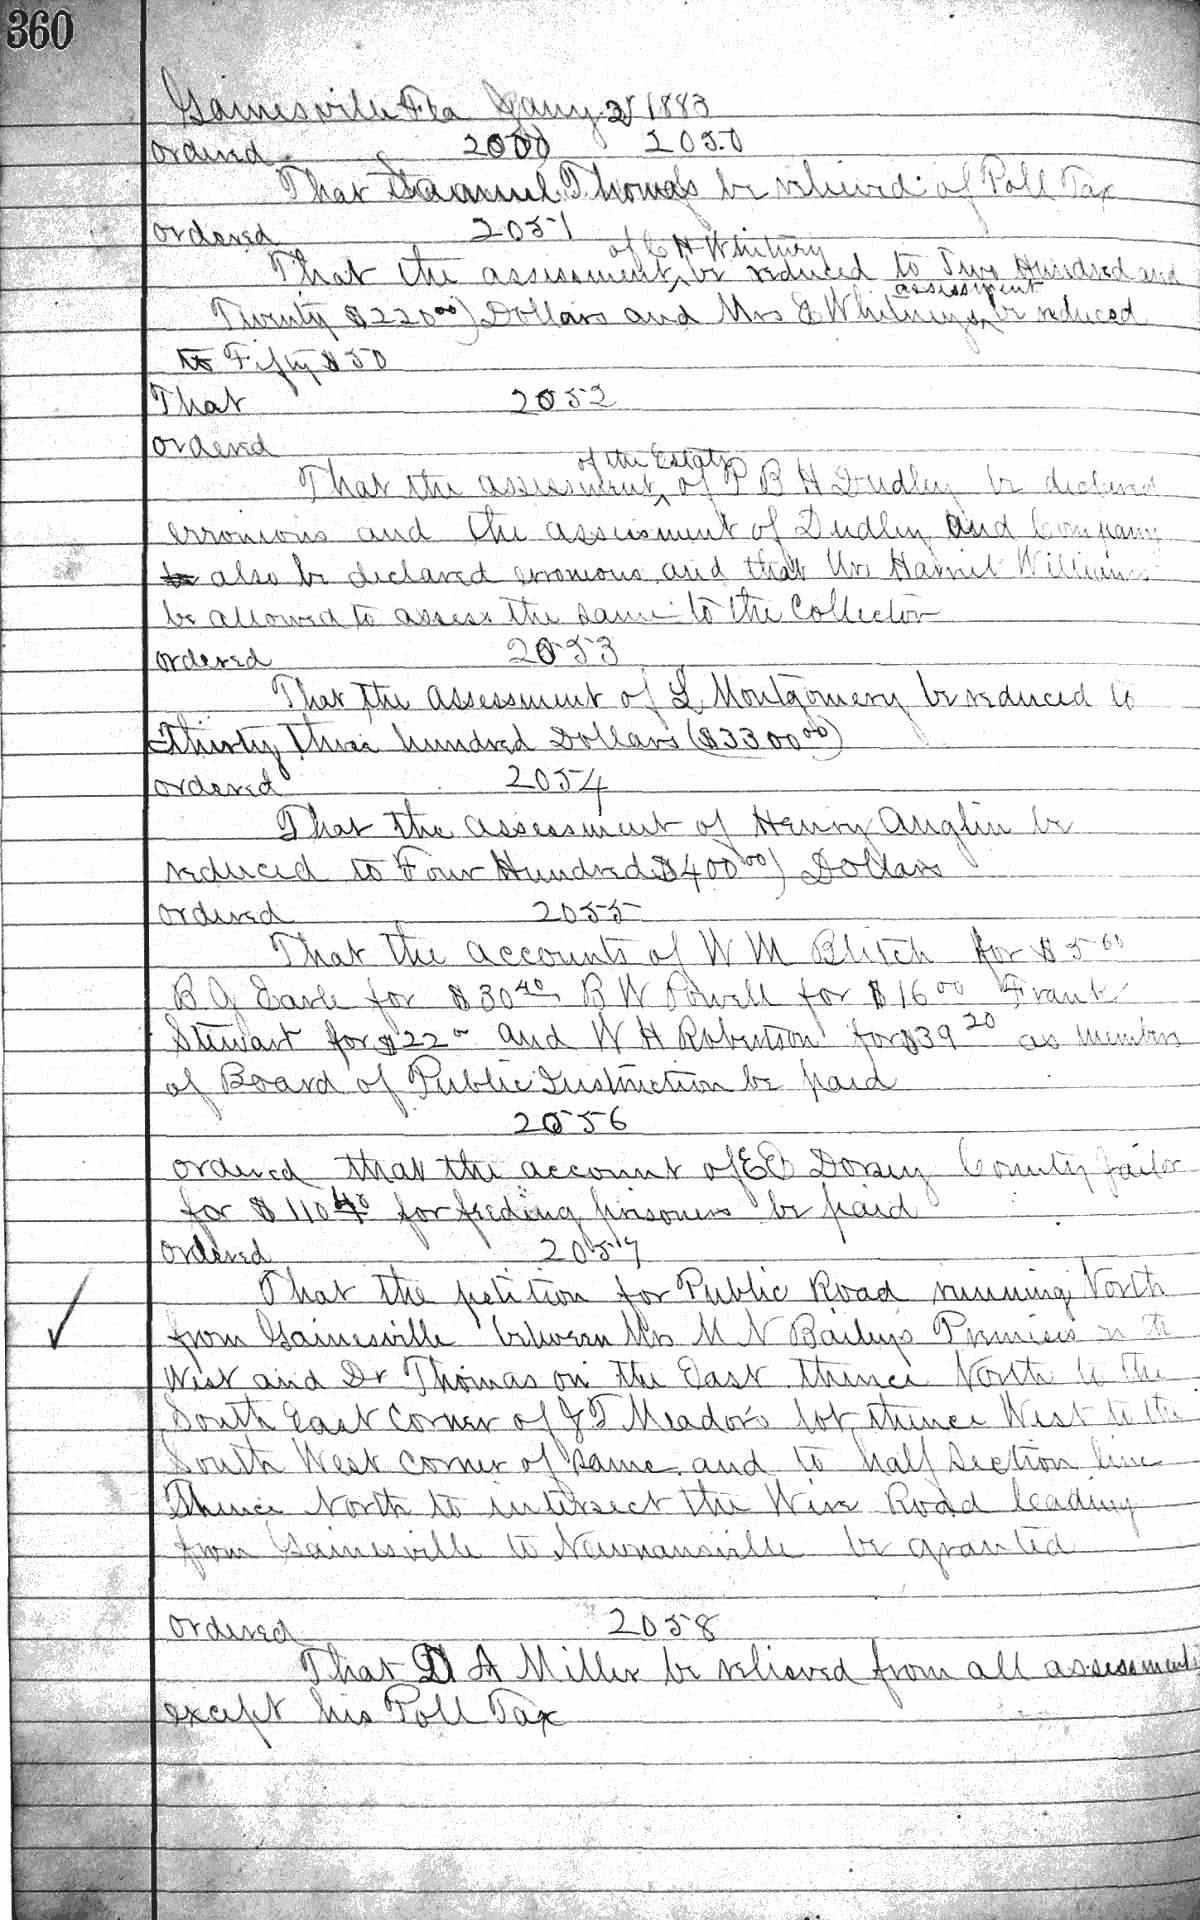 360
Gainesville Fla Jany 2 1883
ordered 2050 2050
That Samuel Thomas be relieved of Poll Tax
ordered 2051
of C H Whitney
That the assessment ^ be reduced to Two Hundred and
assessment
Twenty $220 00) Dollars and Mrs E Whitneys ^ be reduced
to Fifty $50
That 2052
ordered
of the Estate
That the assessment ^ of P B H Dudley be declared
erronious and the assessment of Dudley and Company
also be declared erronious and that Mrs Harriet Williams
be allowed to assess the same to the Collector
ordered 2053
That the assessment of L Montgomery be reduced to
Thirty Three hundred Dollars ($3300 00)
ordered 2054
That the assessment of Henry Anglin be
reduced to Four Hundred $400 00) Dollars
ordered 2055
That the accounts of W M Blitch for $5 60
B G Earle for $30 40 B W Powell for $16 00 Frank
Stewart for $22 00 and W H Robertson for $39 20 as members
of Board of Public Instruction be paid
2056
ordered that the account of E E Dorsey County jailor
for $110 40 for feeding prisoners be paid
ordered 2057
That the petition for Public Road running North
from Gainesville between Mrs M N Baileys Premises on the
West and Dr Thomas on the East thence North to the
South East corner of J T Meador's lot thence West to the
South West corner of same and to half section line
Thence North to intersect the Wire Road leading
from Gainesville to Newnansville be granted
ordered 2058
That D A Miller be relieved from all assessments
except his Poll Tax